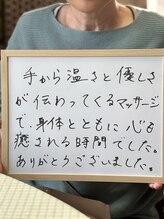 手から温さと優しさ
が伝わってくるマッサージ
で、身体とともに心も
癒される時間でした。
ありがとうございました。